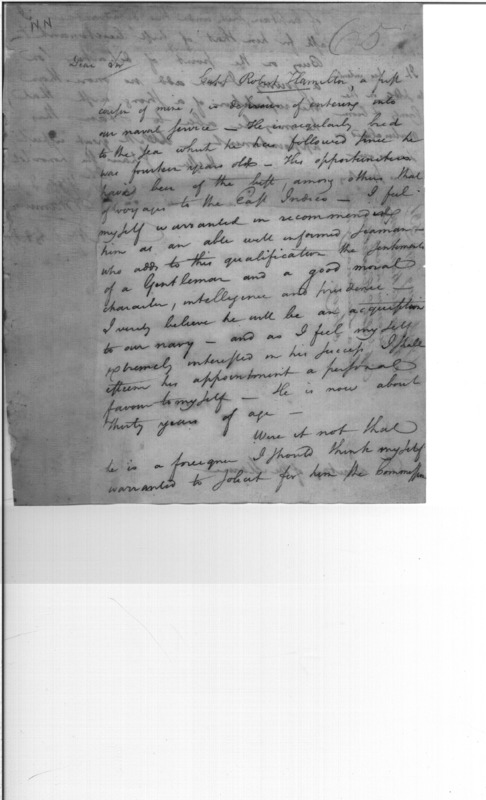 65
Dear Sir
Capt Robert Hamilton, a first
cousin of mine, is desirous of entering into
our naval service — He is regularly bred
to the sea which he has followed since he
was fourteen years old — His opportunities
have been of the best among others that
of voyages to the East Indies — I feel
myself warranted in recommending
him as an able well informed Seaman —
who adds to this qualification the sentiments
of a Gentleman and a good moral
character, intelligence and prudence —
I verily believe he will be an acquisition
to our navy — and as I feel myself
extremely interested in his success, I shall
esteem his appointment a personal
favour to myself — He is now about
thirty years of age —
Were it not that
he is a foreigner I should think myself
warranted to solicit for him the Commission